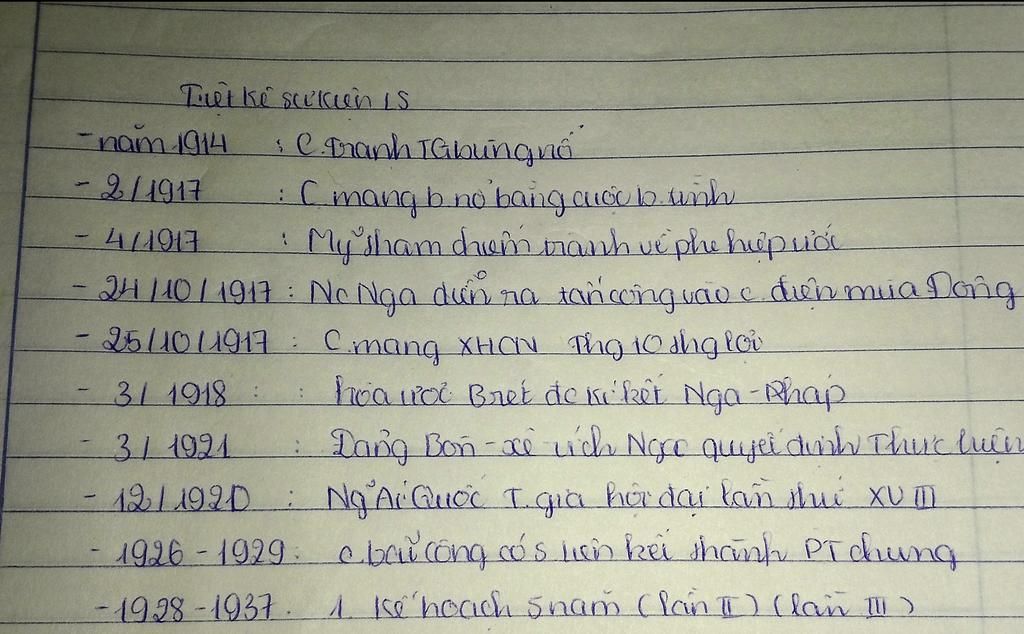 Liệt kê sự kiện LS
- năm 1914 : C.tranh TG bùng nổ
- 2/1917 : C mạng b nổ bằng cuộc b.tình
- 4/1917 : Mỹ tham chiến tranh về phe hiệp ước
- 24/10/1917 : Nc Nga diễn ra tấn công vào c. điện mùa Đông
- 25/10/1917 : C.mạng XHCN Thg 10 thg lợi
- 3/1918 : : hòa ước Bret đc kí kết Nga - Pháp
- 3/1921 : Đảng Bôn - xê vich Nga quyết định Thực hiện
- 12/1920 : Ng~ Ái Quốc T.gia hội đại lần thứ XVIII
- 1926 - 1929 : c.bãi công có s liên kết thành PT chung
- 1928 - 1937 . 1. Kế hoạch 5 năm (lần II) (lần III)